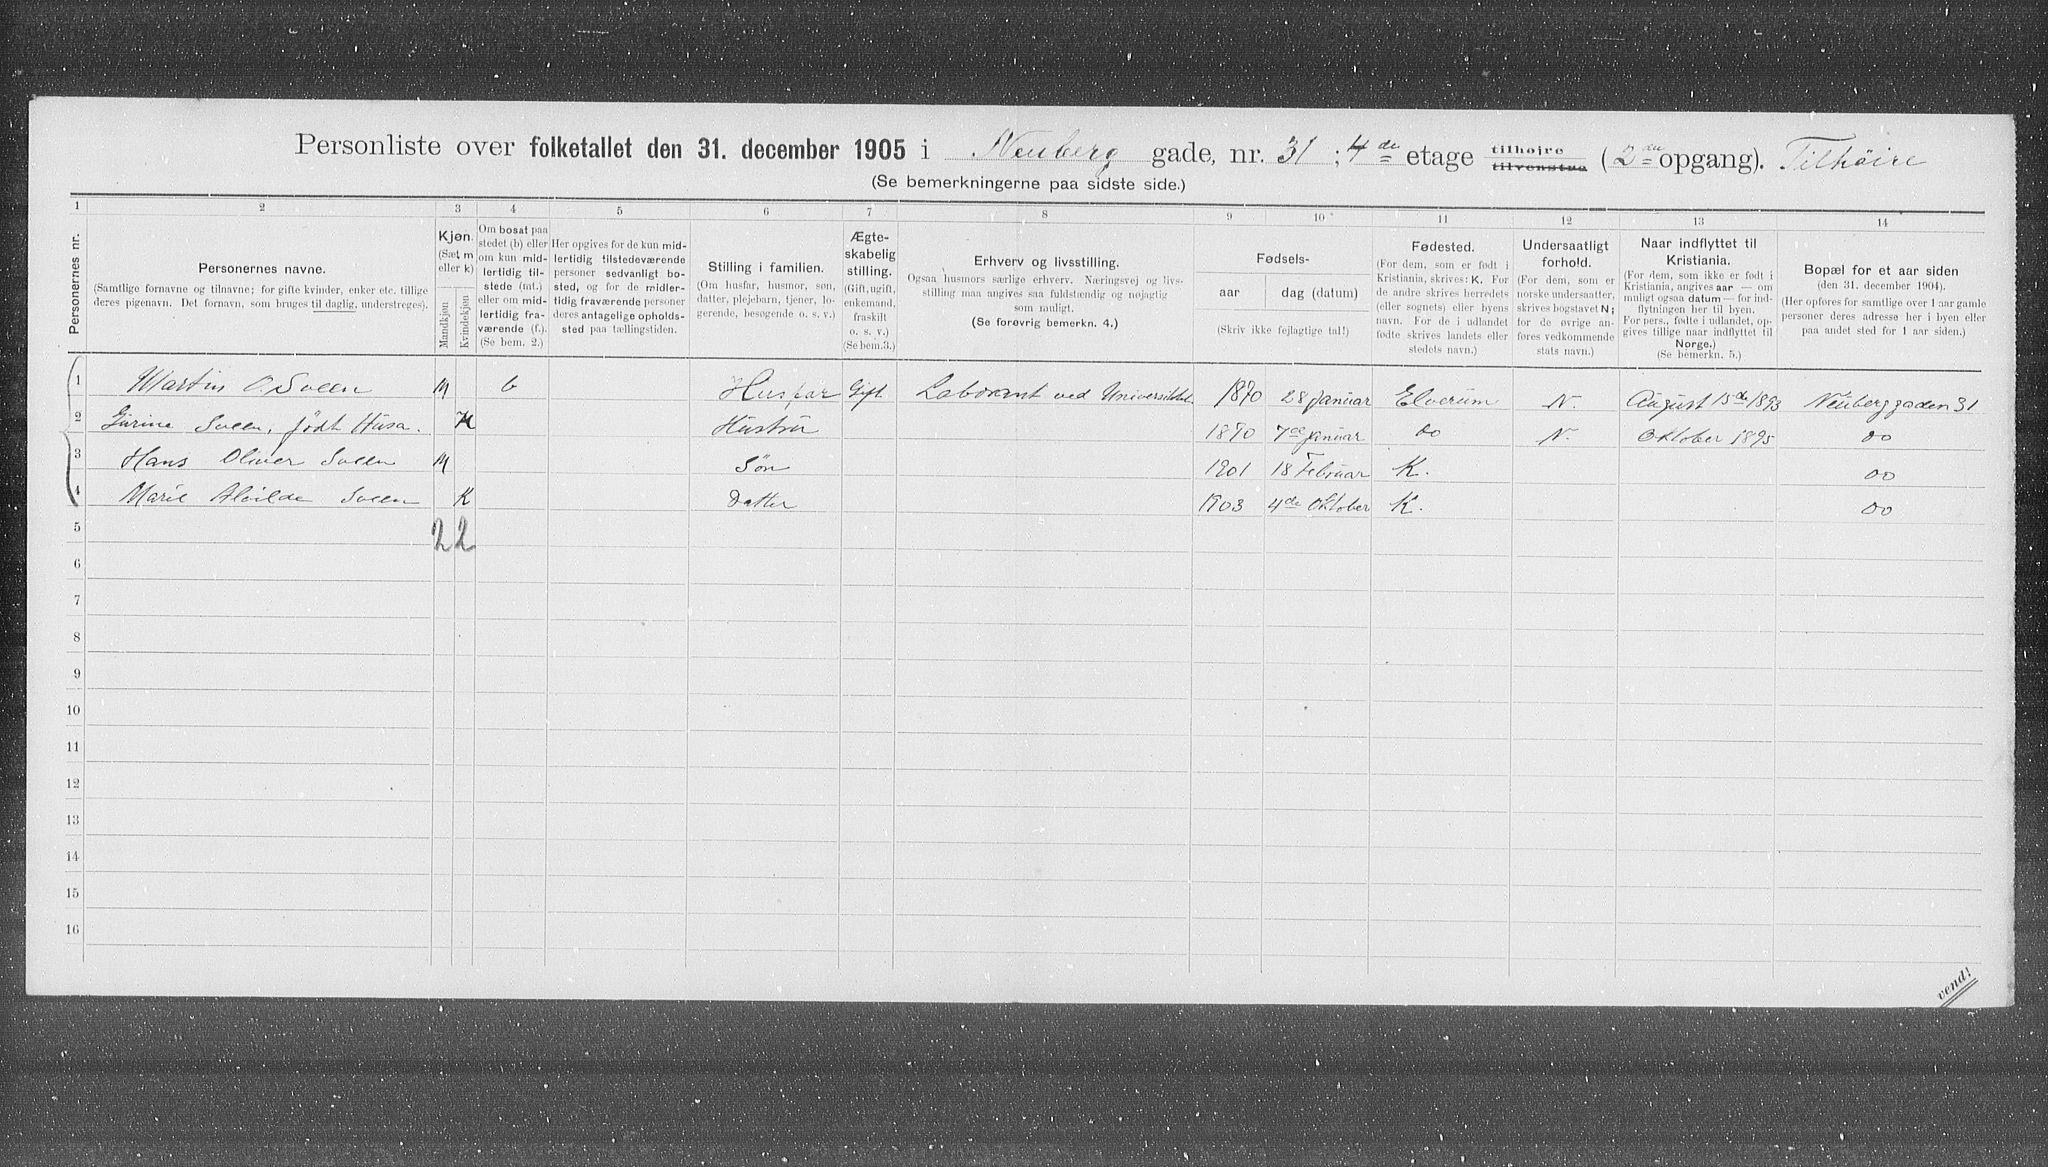 Personliste over folketallet den 31. december 1905 i Neuberg gade, nr. 31 ; 4de etage tilhøire tilvenstre (2den opgang). Tilhøire
(Se bemerkningerne paa sidste side.)
1 2 3 4 5 6 7 8 9 10 11 12 13 14
Personernes nr.
Personernes navne.
(Samtlige fornavne og tilnavne; for gifte kvinder, enker etc. tillige
deres pigenavn. Det fornavn, som bruges til daglig, understreges).
Kjøn.
(Sæt m
eller k)
Mandkjøn
Kvindekjøn
Om bosat paa
stedet (b) eller
om kun mid-
lertidig til-
stede (mt.)
eller om mid-
lertidig fra-
værende (f.).
(Se bem. 2.)
Her opgives for de kun mid-
lertidig tilstedeværende
personer sedvanligt bo-
sted, og for de midler-
tidig fraværende personer
deres antagelige opholds-
sted paa tællingstiden.
Stilling i familien.
(Om husfar, husmor, søn,
datter, plejebarn, tjener, lo-
gerende, besøgende o. s. v.)
Ægte-
skabelig
stilling.
(Gift, ugift,
enkemand,
fraskilt
o. s. v.)
(Se bem. 3.)
Erhverv og livsstilling.
Ogsaa husmors særlige erhverv. Næringsvej og livs-
stilling maa angives saa fuldstændig og nøjagtig
som muligt.
(Se forøvrig bemerkn. 4.)
Fødsels-
aar
dag (datum)
(Skriv ikke fejlagtige tal!)
Fødested.
(For dem, som er født i
Kristiania, skrives: K. For
de andre skrives herredets
(eller sognets) eller byens
navn. For de i udlandet
fødte skrives landets eller
stedets navn.)
Undersaatligt
forhold.
(For dem, som er
norske undersaatter,
skrives bogstavet N;
for de øvrige an-
føres vedkommende
stats navn.)
Naar indflyttet til
Kristiania.
(For dem, som ikke er født i
Kristiania, angives aar — om
muligt ogsaa datum — for ind-
flytningen her til byen.
For pers., født i udlandet, op-
gives tillige naar indflyttet til
Norge.)
(Se bemerkn. 5.)
Bopæl for et aar siden
(den 31. december 1904).
(Her opføres for samtlige over 1 aar gamle
personer deres adresse her i byen eller
paa andet sted for 1 aar siden.)
1 Martin O. Sveen M b Husfar Gift Laborant ved Universitetet 1870 28 januar Elverum N. August 15de 1893 Neuberggaden 31
2 Gurine Sveen, født Husa. K Hustru 1870 7de januar do N. Oktober 1895 do
3 Hans Oliver Sveen M Søn 1901 18 Februar K. do
4 Marie Alvilde Sveen K Datter 1903 4de Oktober K. do
5 2 2
6
7
8
9
10
11
12
13
14
15
16
vend!